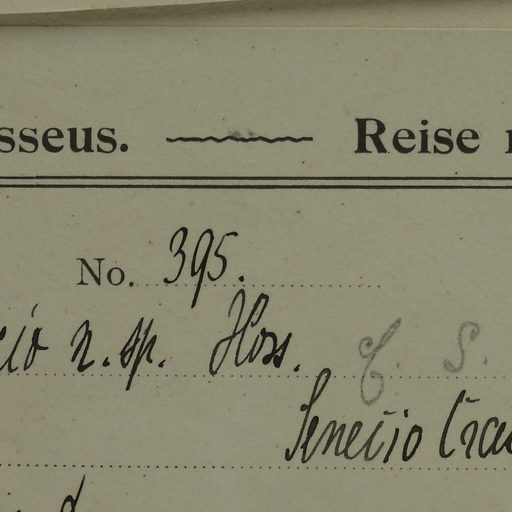 sseus. Reise
No. 395.
cio n. sp. Hoss. C. S.
Senecio Crau